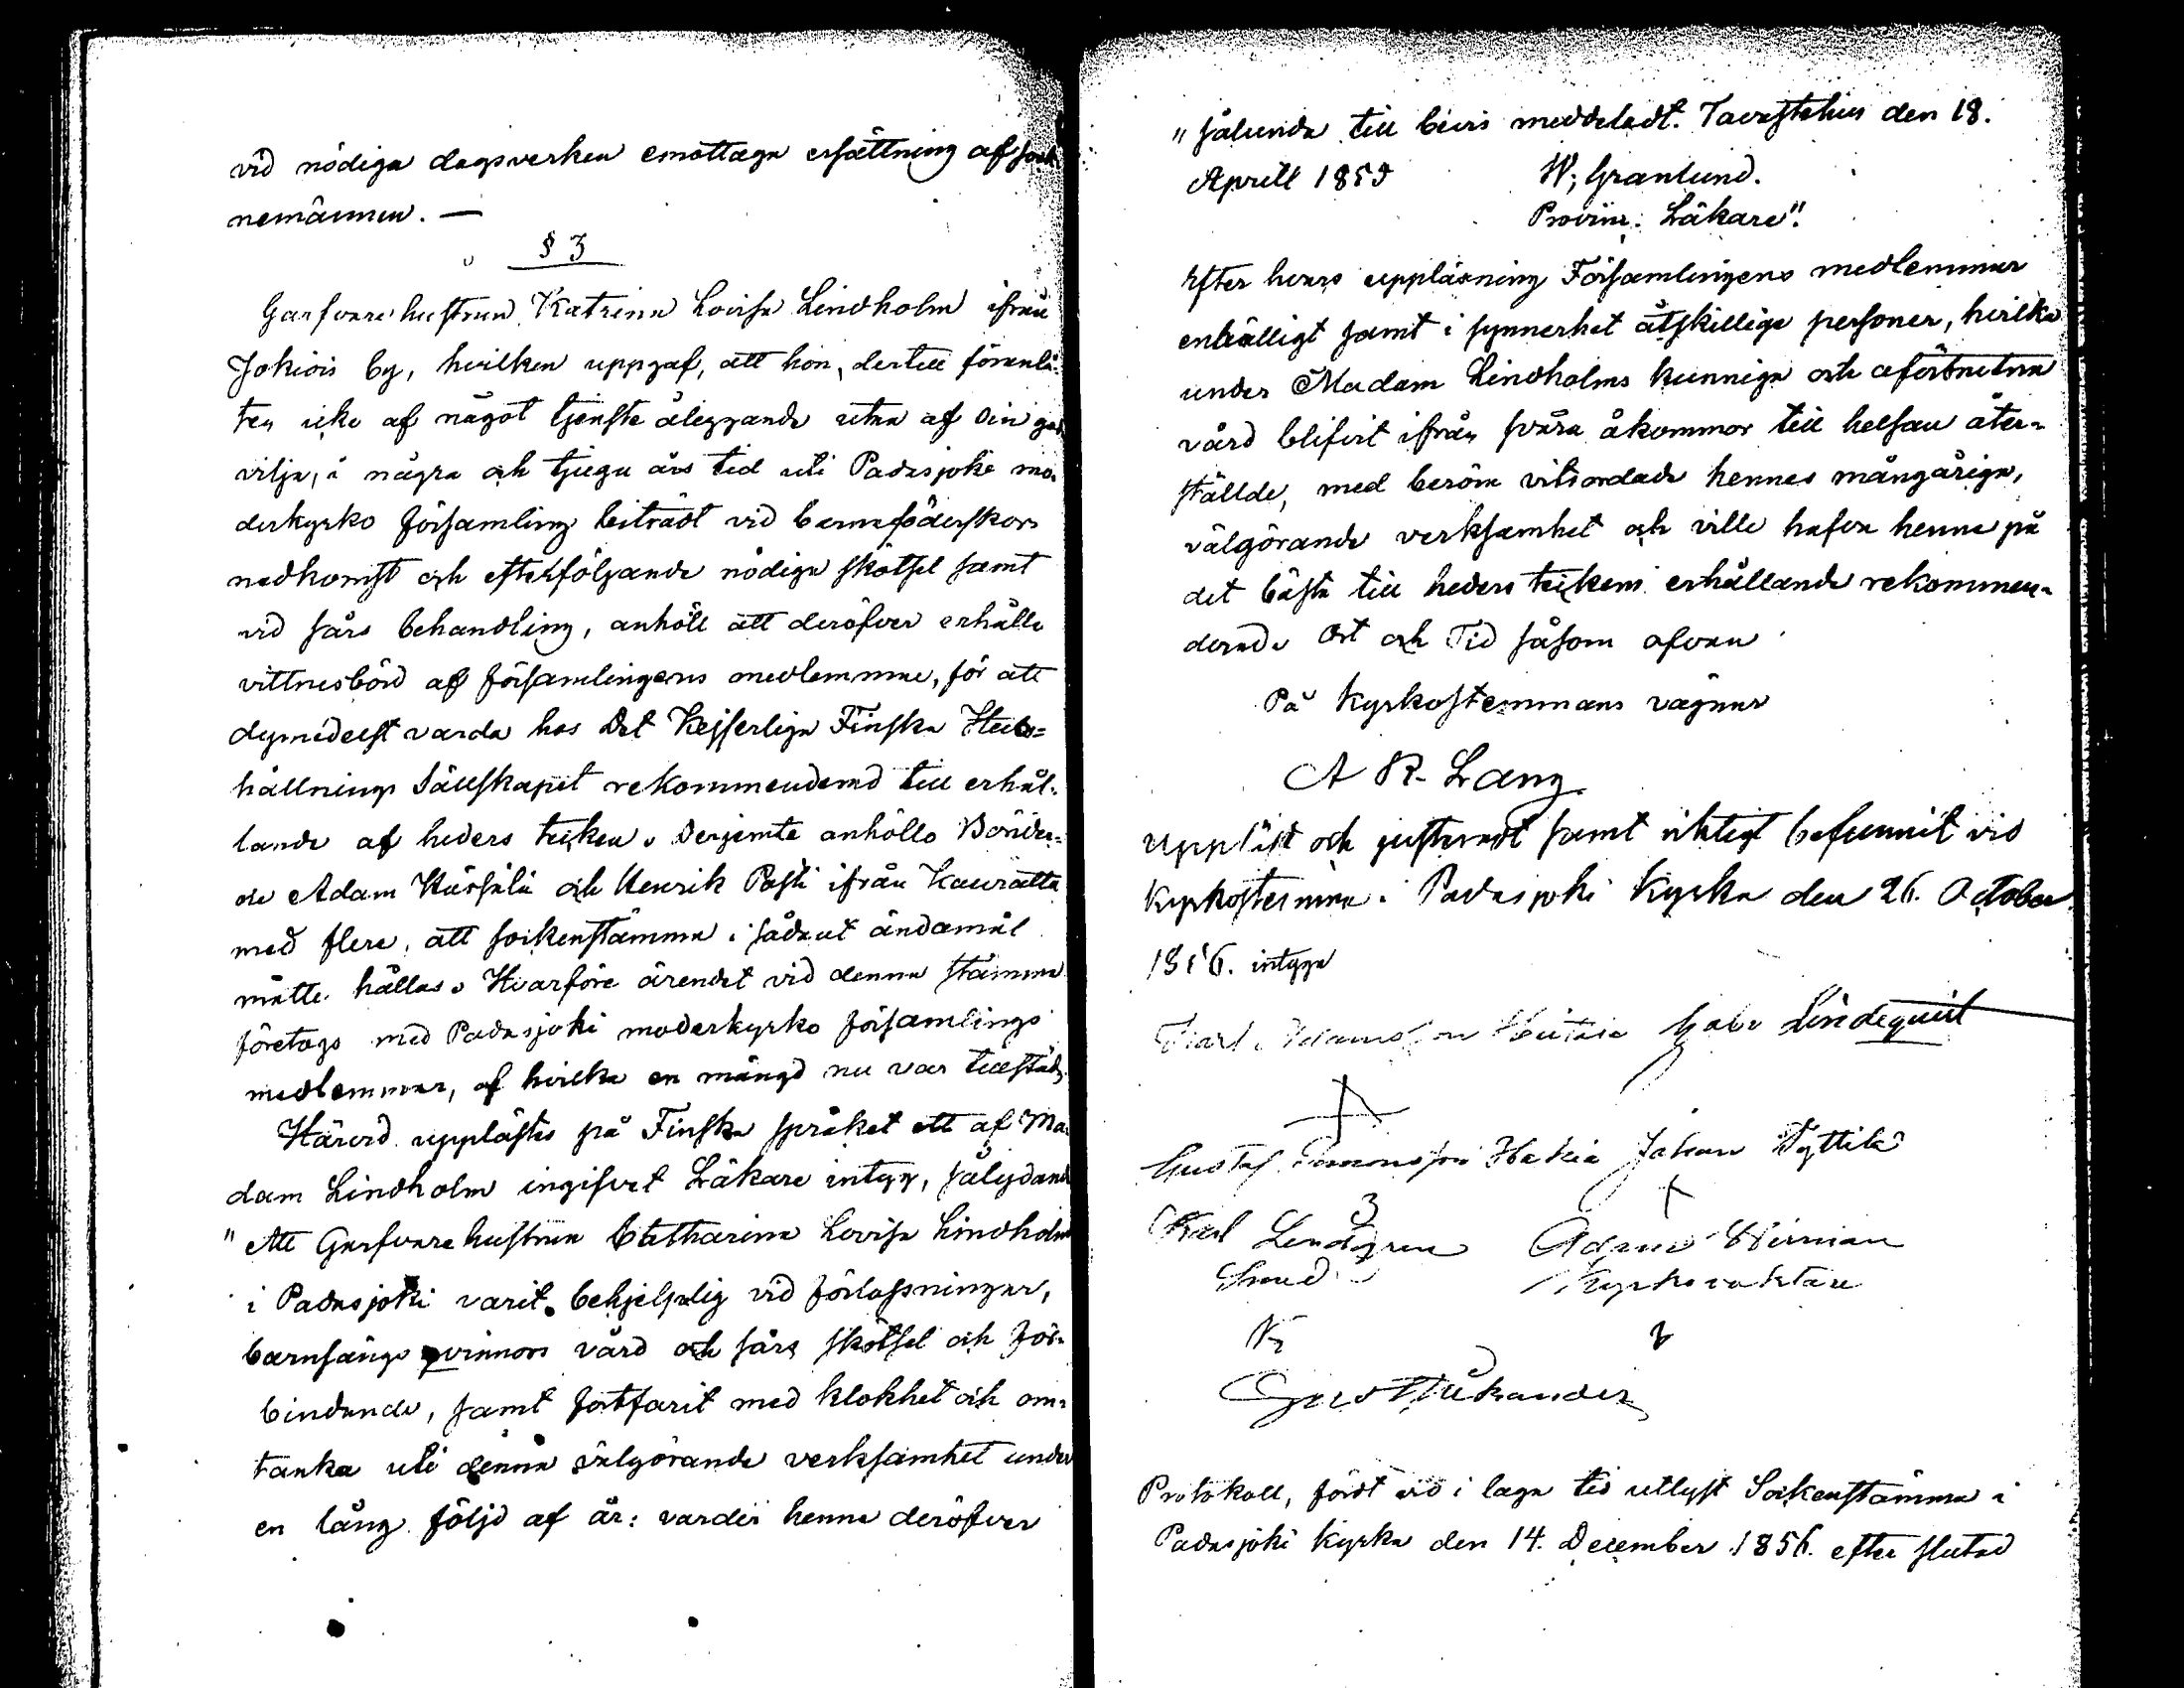 vid nödiga dagsverken emottaga ersättning af sock
nemännen. —
§ 3
Garfvare hustrun Katrina Lovisa Lindholm ifrån
Jokiois by, hvilken uppgaf, att hon, dertill föranlå-
ten icke af något tjenste åliggande utan af Din god
vilja, i några och tjugu års tid uti Padasjoki mo-
derkyrko församling biträdt vid barnaföderskors
nedkomst och efterföljande nödiga skötsel samt
vid sårs behandling, anhöll att deröfver erhålla
vittnesbörd af församlingens medlemmar, för att
dymedelst varda hos Det Kejserliga Finska Hus-
hållnings Sällskapet rekommenderad till erhål-
lande af heders tecken. Derjemte anhöllo Bönder-
ne Adam och Henrik Pasti ifrån Kauratta
med flere, att sockenstämma i sådant ändamål
måtte hållas. Hvarföre ärendet vid denna stämma
företogs med Padasjoki moderkyrko församlings
medlemmar, af hvilka en mängd nu var tillstädes.
Härvid upplästes på Finska språket ett af Ma-
dam Lindholm ingifvet Läkare intyg, sålydande
" Att Garfvare hustrun Catharina Lovisa Lindholm
i Padasjoki varit behjelplig vid förlossningar,
barnsängs qvinnors vård och sårs skötsel och för-
bindande, samt fortfarit med klokhet och om-
tanka uti denna välgörande verksamhet under
en lång följd af år: varder henne deröfver
" sålunda till bevis meddeladt. Tavastehus den 18.
Aprill 1859 W; Granlund.
Provins. Läkare".
Efter hvars uppläsning Församlingens medlemmar
enhälligt samt i synnerhet åtskillige personer, hvilka
under Madam Lindholms kunniga och oförtrutna
vård blifvit ifrån svåra åkommor till helsan åter-
ställde, med beröm vitsordade hennes mångåriga,
välgörande verksamhet och ville hafva henne på
det bästa till heders teckens erhållande rekommen-
derad. Ort och Tid såsom ofvan
På Kyrkostemmans vägnar
A R. Lang
Uppläst och justeradt samt riktigt befunnit vid
Kyrkostemma i Padasjoki Kyrka den 26. October
1856. intyga
Karl Adamsson Gabr Lindequist
Gustaf Hakia Johan Tyttilä
Karl Lindgren Adam Hirmian
Smed Kyrkovaktare
Gust
Protokoll, fördt vid i laga tid utlyst Sockenstämma i
Padasjoki Kyrka den 14. December 1856. efter slutad